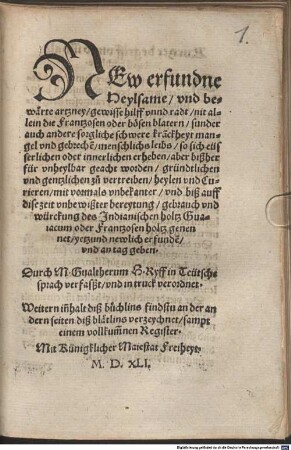 1.
New erfundne
Heylsame/ vnd be-
wärte artzney/ gewisse hilff vnnd radt/ nit al-
lein die Frantzosen oder bösen blatern/ sunder
auch andere sorgliche schwere kräckheyt man-
gel vnd gebrechē/ menschlichs leibs/ so sich eüs
serlichen oder innerlichen erheben/ aber bißher
für vnheylbar geacht worden/ gründtlichen
vnd gentzlichen zů vertreiben/ heylen vnd Cu-
rieren/ mit vormals vnbekanter/ vnd biß auff
dise zeit vnbewißter bereytung/ gebrauch vnd
würckung des Indianischen holtz Gua-
iacum oder Frantzosen holtz genen
net/ yetzund newlich erfundē/
vnd an tag geben.
Durch M. Gualtherum H. Ryff in Teütsch-
sprach verfaßt/ vnd in truck verordnet.
Weitern iñhalt diß bůchlins findstu an der an
dern seiten diß blätlins verzeychnet/ sampt
einem vollkum̃nen Register.
Mit Künigklicher Maiestat Freiheyt.
M. D. XLI.